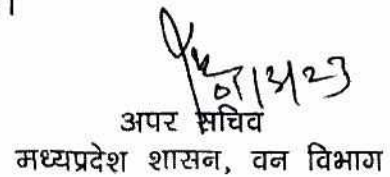 01/3/23
अपर सचिव
मध्यप्रदेश शासन, वन विभाग